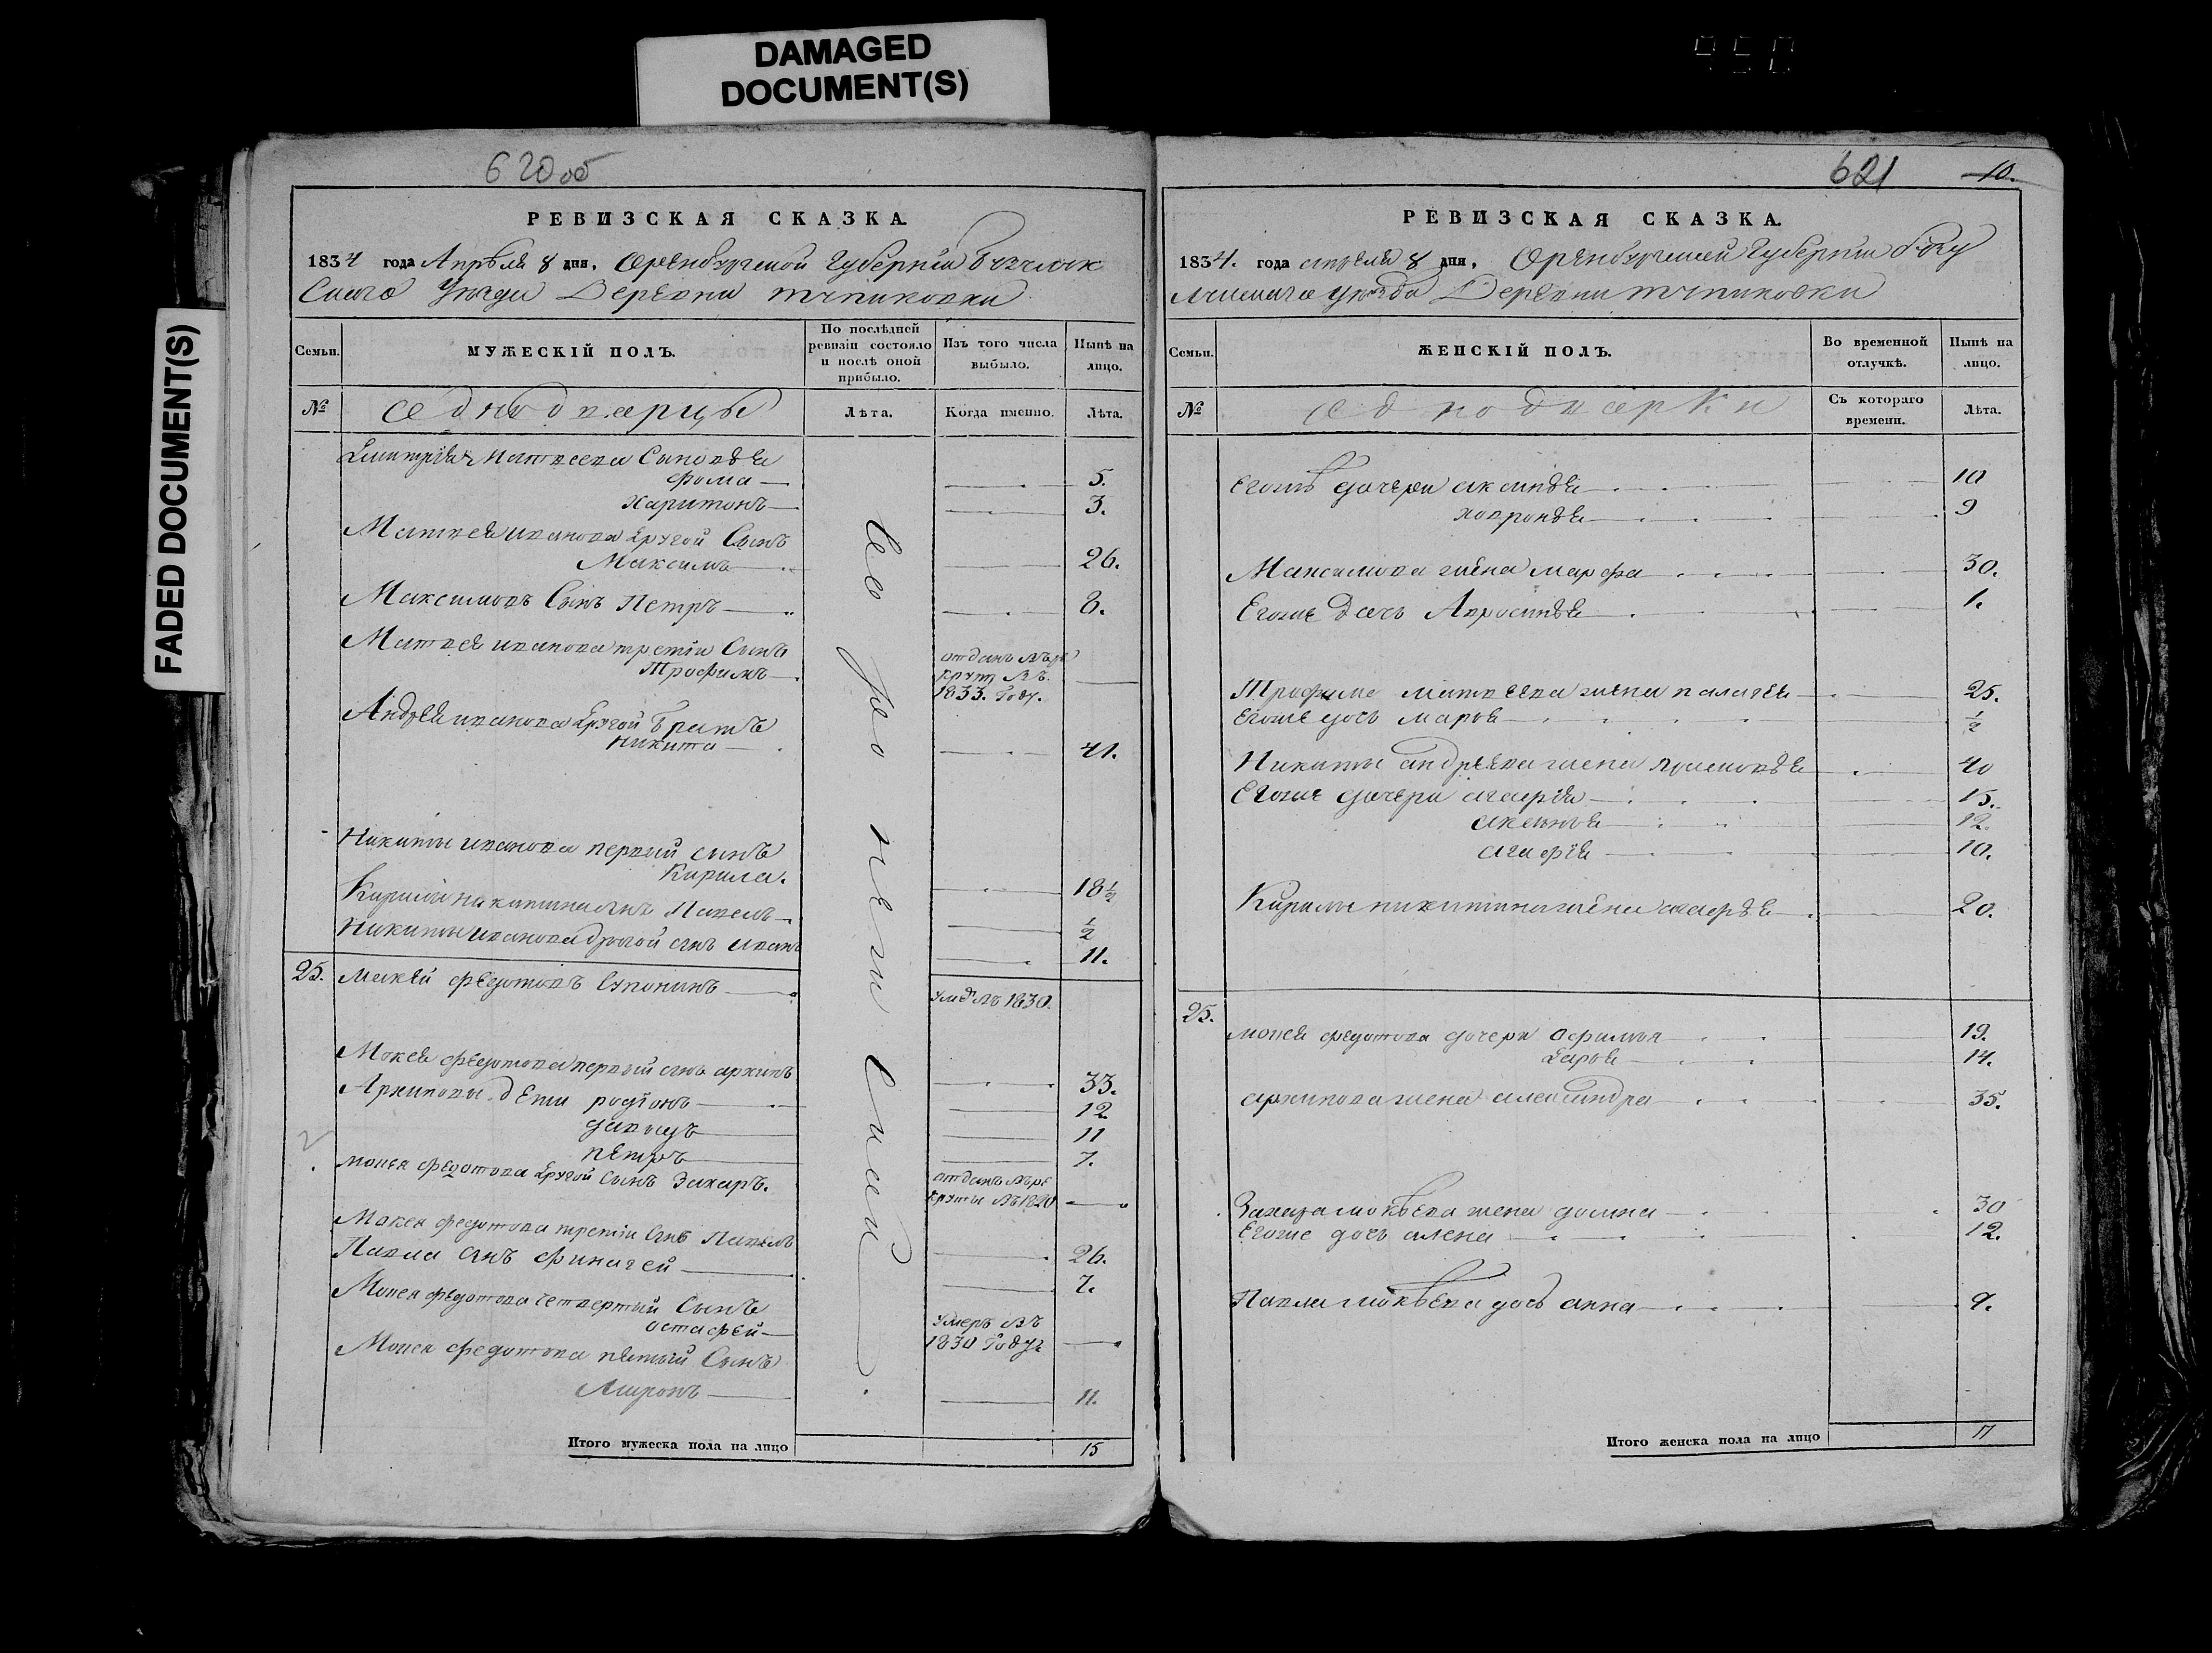 DAMAGED
DOCUMENT(S)
FADED DOCUMENT(S)
950
620об
РЕВИЗСКАЯ СКАЗКА.
1834 года Апреля 8 дня. Оренбургской Губернiи Бузулук
скаго Уезда Деревни
Семьи.
МУЖЕСКIЙ ПОЛЪ.
По послѣдней
ревизiи состояло
и послѣ оной
прибыло.
Изъ того числа
выбыло.
Нынѣ на
лицо.
№
однодворцы
Лѣта.
Когда именно.
Лѣта.
Матвеева Сыновья
Фома 5.
Харитонъ 3.
Матвея иванова другой Сынъ
Максимъ 26.
Максимовъ Сынъ Петръ 8.
Матвея иванова третiи Сынъ
Трофимъ отданъ въ ре
крут въ
1833. Году.
Андрея иванова другой братъ
Никита 41.
Никиты иванова первый сынъ
Кирила. 18 1/2
Кирилы никитина сынъ Павелъ 1/2
Никиты иванова другой сынъ иванъ 11.
25. Мокей федотовъ 1830.
Мокея федотова первый сынъ архипъ 33.
Архиповы дети родiонъ 12
давыдъ 11
петръ 7.
мокея федотова другой сынъ Захаръ. отданъ въ ре
круты въ 1820
Мокея федотова третiи сынъ Павелъ 26.
Павла сынъ финагей 7.
Мокея федотова четвертый Сынъ
остафей умеръ въ
1830 Году
Мокея федотова пятый Сынъ
Миронъ 11.
Итого мужеска пола на лицо 15
621 10.
РЕВИЗСКАЯ СКАЗКА.
1834. года апреля 8 дня. Оренбургской Губернiи Бузу
лукскаго уезда Деревни
Семьи.
ЖЕНСКIЙ ПОЛЪ.
Во временной
отлучкѣ.
Нынѣ на
лицо.
№
однодворки
Съ котораго
времени.
Лѣта.
Его дочери аксинья 10
ховронья 9
Максимова жена марфа 30.
Егоже дочь Авросинья 1.
Трофима матвеева жена палагея 25.
Егоже дочь марья 1/2
Никиты андреева жена 40
Егоже дочери 15.
аксинья 12.
агафiя 10.
Кирилы никитина жена 20.
25.
мокея федотова дочери офимья 19.
дарья 14.
архипова жена александра 35.
Захара мокеева жена домна 30
Егоже дочь алена 12.
Павла мокеева дочь анна 9.
Итого женска пола на лицо 17